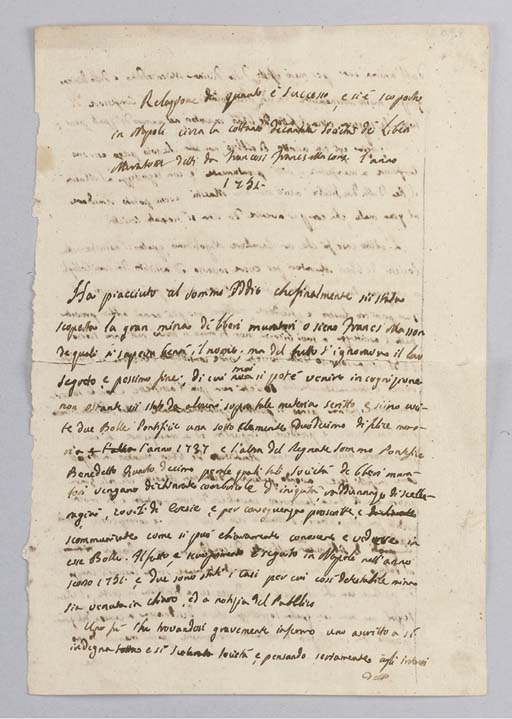 Relazione di quanto è successo, e si è scoperto
in Napoli circa la cotanto decantata Società di liberi
Muratori detti da Francesi Francs Macons l'anno
1751.
Ha piacciuto al sommo Iddio che finalmente siasi
scoperta la gran mina di liberi muratori o sieno Francs Masson
de quali si sapeva bensì il nome, ma del tutto s'ignorava il loro
segreto e pessimo fine, di cui mai si potè venire in cognizione
non ostante sii stato da alcuni sopra tale materia scritto, e si sieno avute
due Bolle Pontificie una sotto Clemente Duodecimo di felice memoria
l'anno 1737 e l'altra del Regnante Sommo Pontifice
Benedetto Quarto decimo per le quali tali Società de liberi mura
tori vengano dichiarate d'iniquità, radunanza di scelle
ragini, covili di Eresie e per conseguenza proscritte, e
scommunicate come si può chiaramente conoscere e vedere in
esse Bolle. Il fatto, e scoprimento è seguito in Napoli nell'anno
scorso 1751. e due sono stati i casi per cui così detestabile mina
sia venuta in chiaro, ed a notizia del Pubblico
Uno fu che trovandosi gravemente infermo uno ascritto a sì
indegna e sì scelerata Società e, pensando seriamente agli
dell'